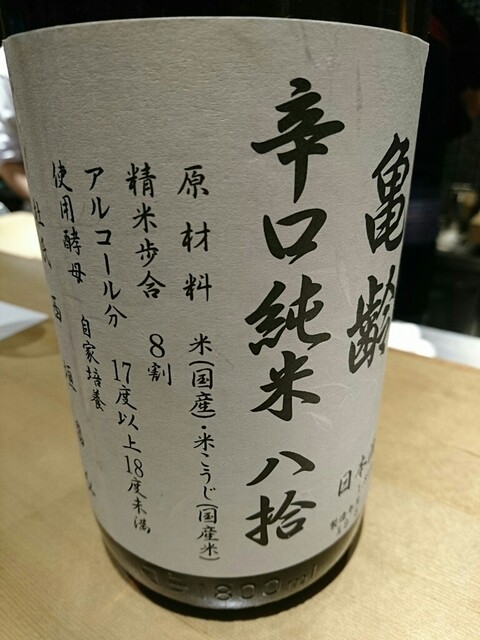 亀齢
日本
辛口純米 八拾
原材料 米(国産)・米こうじ(国産米)
精米歩合 8割
アルコール分 17度以上18度未満
使用酵母 自家培養
杜氏 西垣
1800ml